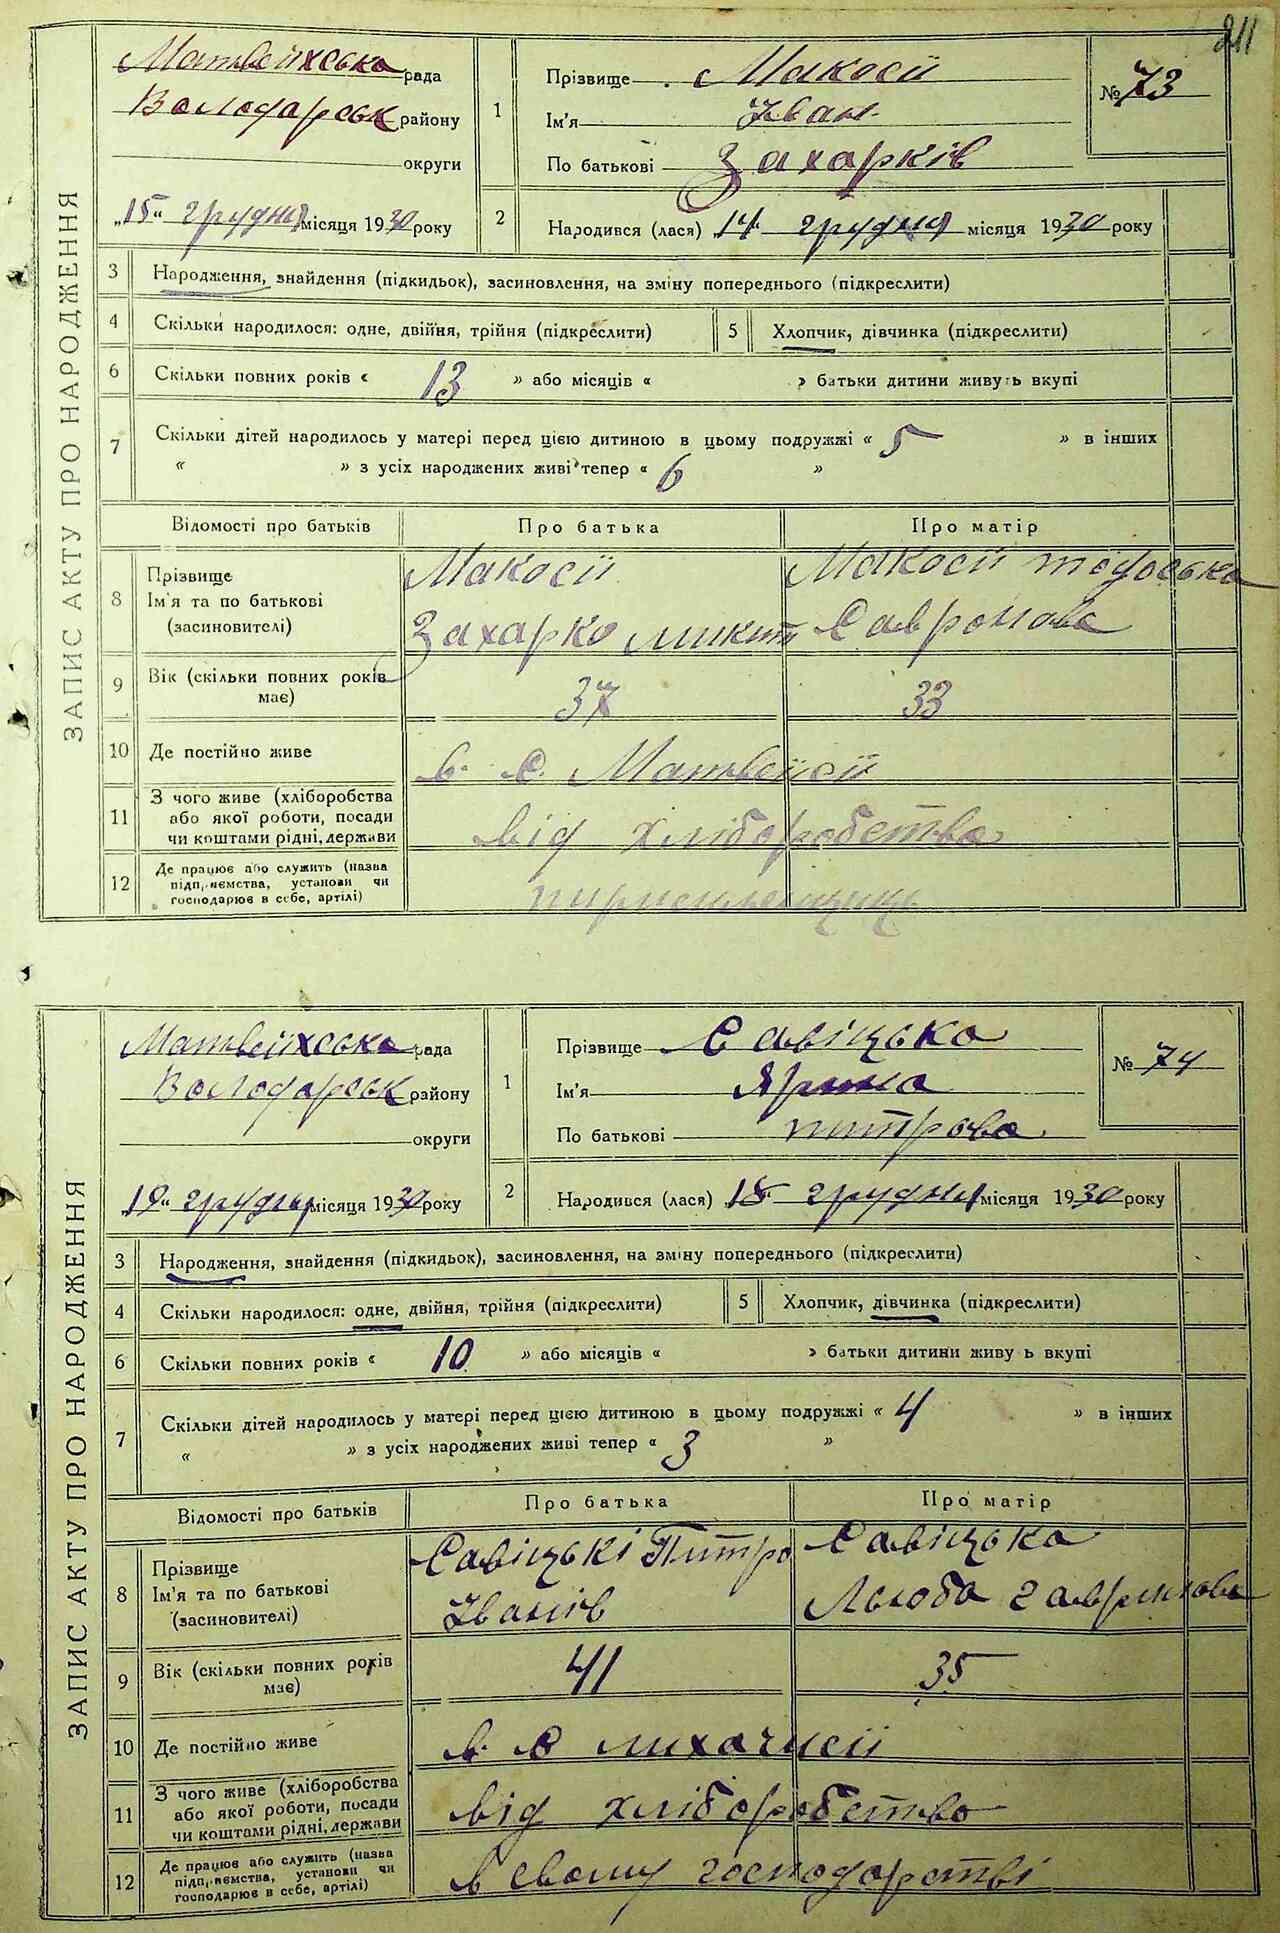 211
Матвейхська рада
Володарськ району
округи
„15“ грудня місяця 1930 року
1
Прізвище Макосії
Ім'я Іван
По батькові Захарків
№ 73
2
Народився (лася) 14 грудня місяця 1930 року
ЗАПИС АКТУ ПРО НАРОДЖЕННЯ
3 Народження, знайдення (підкидьок), засиновлення, на зміну попереднього (підкреслити)
4 Скільки народилося: одне, двійня, трійня (підкреслити) 5 Хлопчик, дівчинка (підкреслити)
6 Скільки повних років « 13 » або місяців « » батьки дитини живуть вкупі
7 Скільки дітей народилось у матері перед цією дитиною в цьому подружжі « 5 » в інших
« » з усіх народжених живі тепер « 6 »
Відомості про батьків Про батька Про матір
8 Прізвище Ім'я та по батькові (засиновителі)
Макосії Макосії тодоська
Захарко микит Савронова
9 Вік (скільки повних років має) 37 33
10 Де постійно живе в. с. Матвейсії
11 З чого живе (хліборобства або якої роботи, посади чи коштами рідні, держави
від хліборобства
12 Де працює або служить (назва підприємства, установи чи господарює в себе, артілі)
Матвейхська рада
Володарськ району
округи
„19“ грудня місяця 1930 року
1
Прізвище Савіцька
Ім'я Ярина
По батькові питрова
№ 74
2
Народився (лася) 18 грудня місяця 1930 року
ЗАПИС АКТУ ПРО НАРОДЖЕННЯ
3 Народження, знайдення (підкидьок), засиновлення, на зміну попереднього (підкреслити)
4 Скільки народилося: одне, двійня, трійня (підкреслити) 5 Хлопчик, дівчинка (підкреслити)
6 Скільки повних років « 10 » або місяців « » батьки дитини живу ь вкупі
7 Скільки дітей народилось у матері перед цією дитиною в цьому подружжі « 4 » в інших
« » з усіх народжених живі тепер « 3 »
Відомості про батьків Про батька Про матір
8 Прізвище Ім'я та по батькові (засиновителі)
Савіцькі Питро Савіцька
Іванів Льюба гаврилова
9 Вік (скільки повних років має) 41 35
10 Де постійно живе в. с лихачисії
11 З чого живе (хліборобства або якої роботи, посади чи коштами рідні, держави
від хліборобство
12 Де працює або служить (назва підприємства, установи чи господарює в себе, артілі)
в свому господарстві